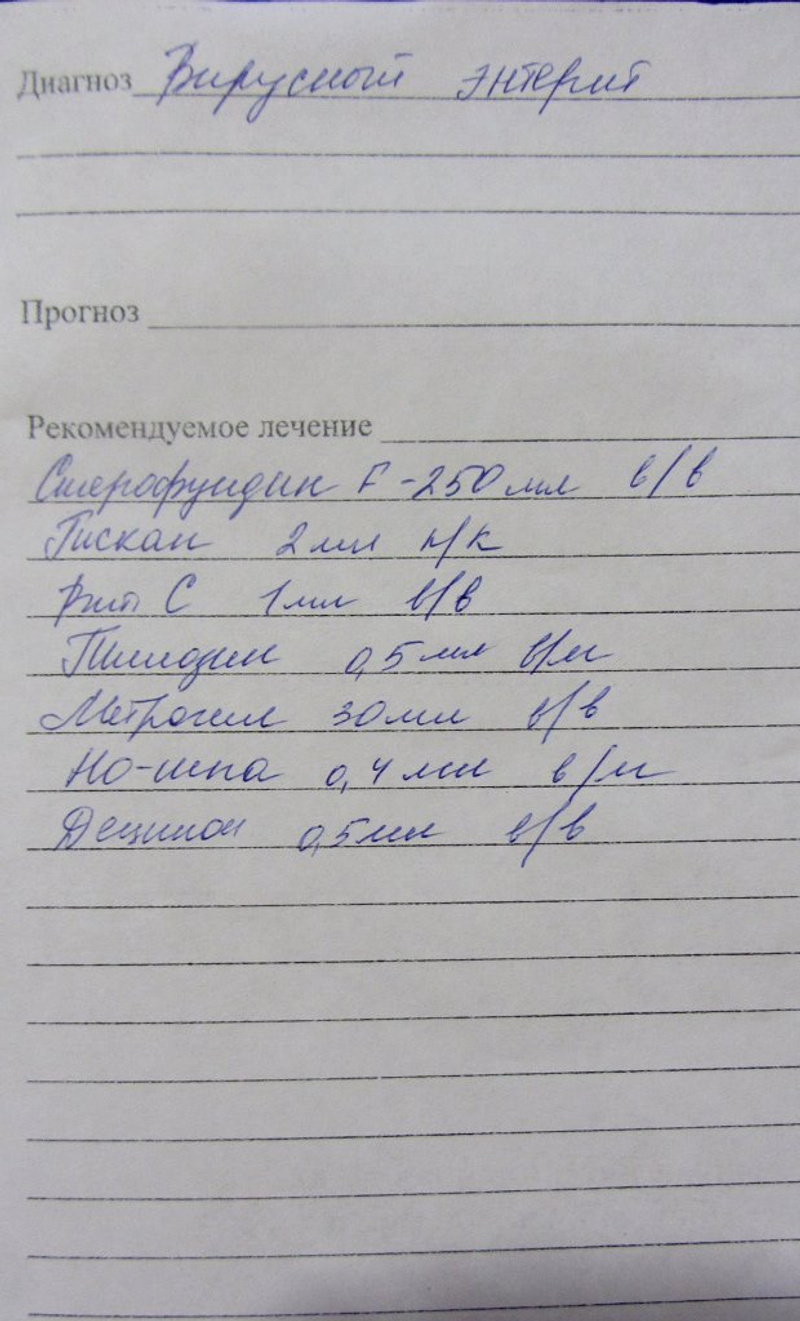 Диагноз Вирусный энтерит
Прогноз
Рекомендуемое лечение
Стерофундин г-250 мл в/в
Гискан 2 мл п/к
Вит С 1 мл в/в
Тилозин 0,5 мл в/м
Метрогил 30 мл в/в
Но-шпа 0,4 мл в/м
Дицинон 0,5 мл в/в